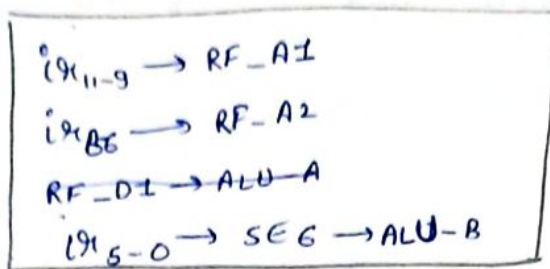 ir₁₁₋₉ → RF_A1
ir₈₆ → RF_A2
RF_D1 → ALU-A
ir₅₋₀ → SE6 → ALU-B